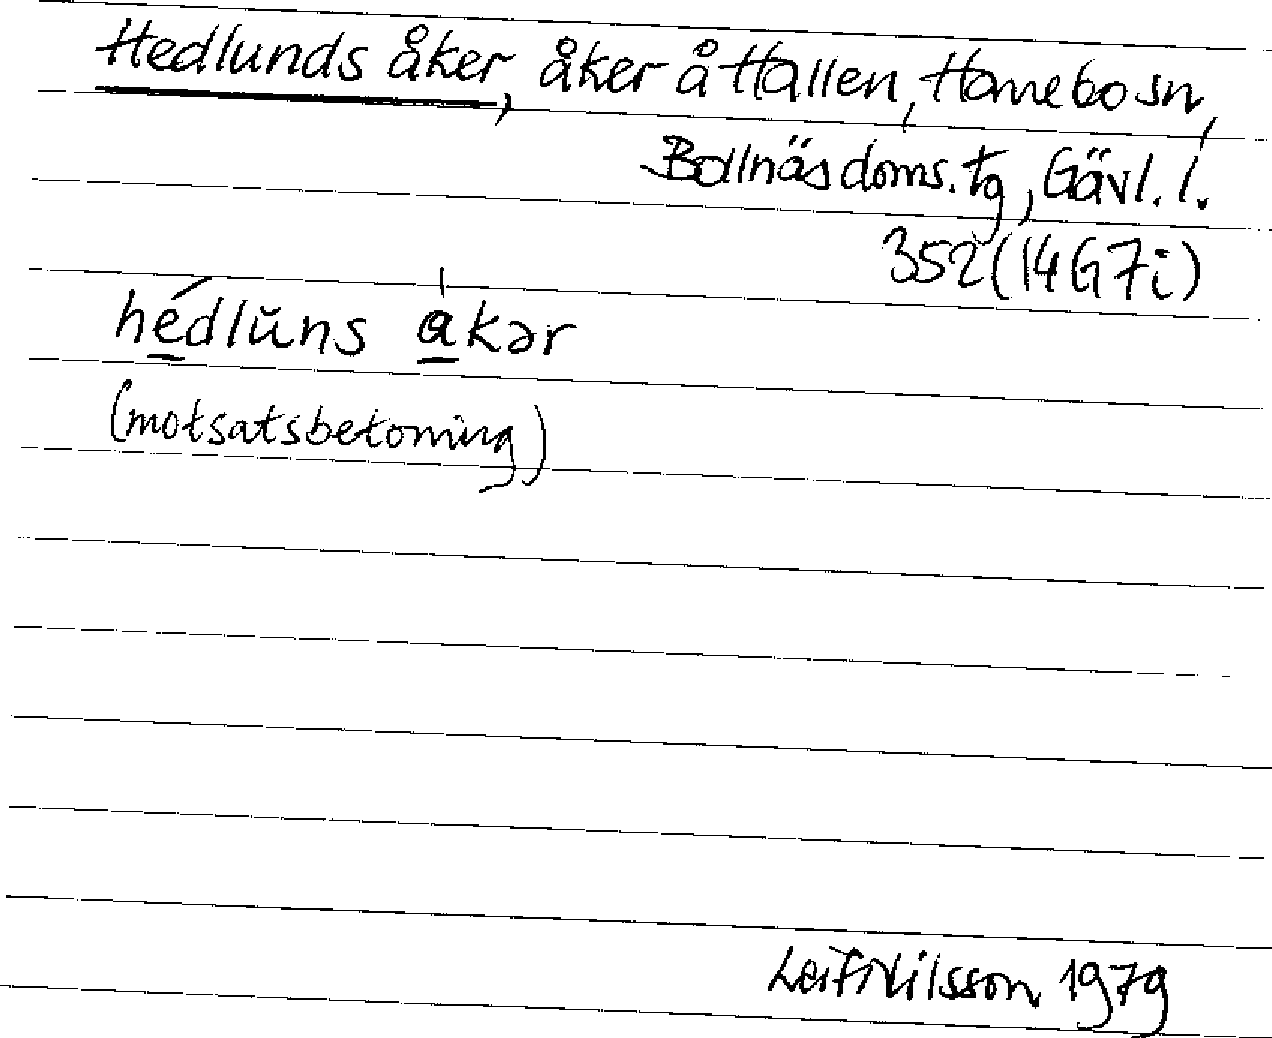 Hedlunds åker, åker å Hallen, Hanebo sn,
Bollnäs doms. tg, Gävl. l.
352 (14G7i)
hédlŭns åkər
(motsatsbetoning)
Leif Nilsson 1979